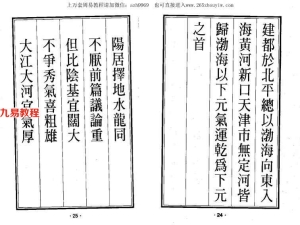 上万套周易教程添加微信:sch0969 也可直接进入www.265zhouyiw.com
建都於北平總以渤海向東入
海黃河新口天津市無定河皆
歸渤海以下元氣運乾爲下元
之首
- 24 -
陽居擇地水龍同
不厭前篇議論重
但比陰基宜闊大
不爭秀氣喜粗雄
大江大河
氣厚
- 25 -
九易教程